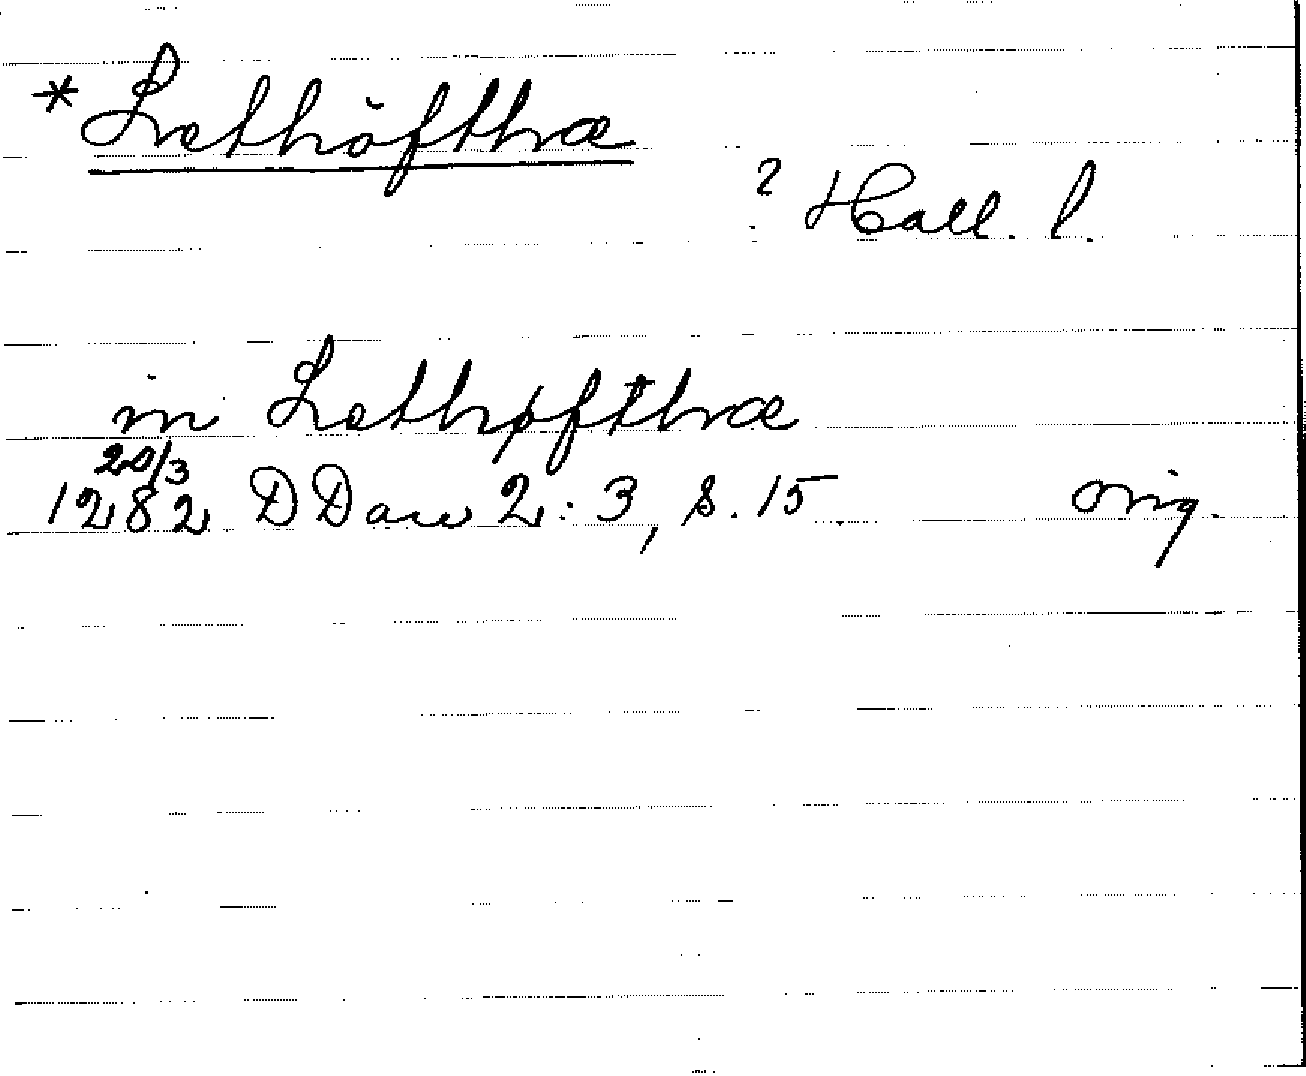 *Lethöfthæ
? Hall. l.
in Lethøfthæ
20/3
1282 DDan 2:3, s. 15 orig.